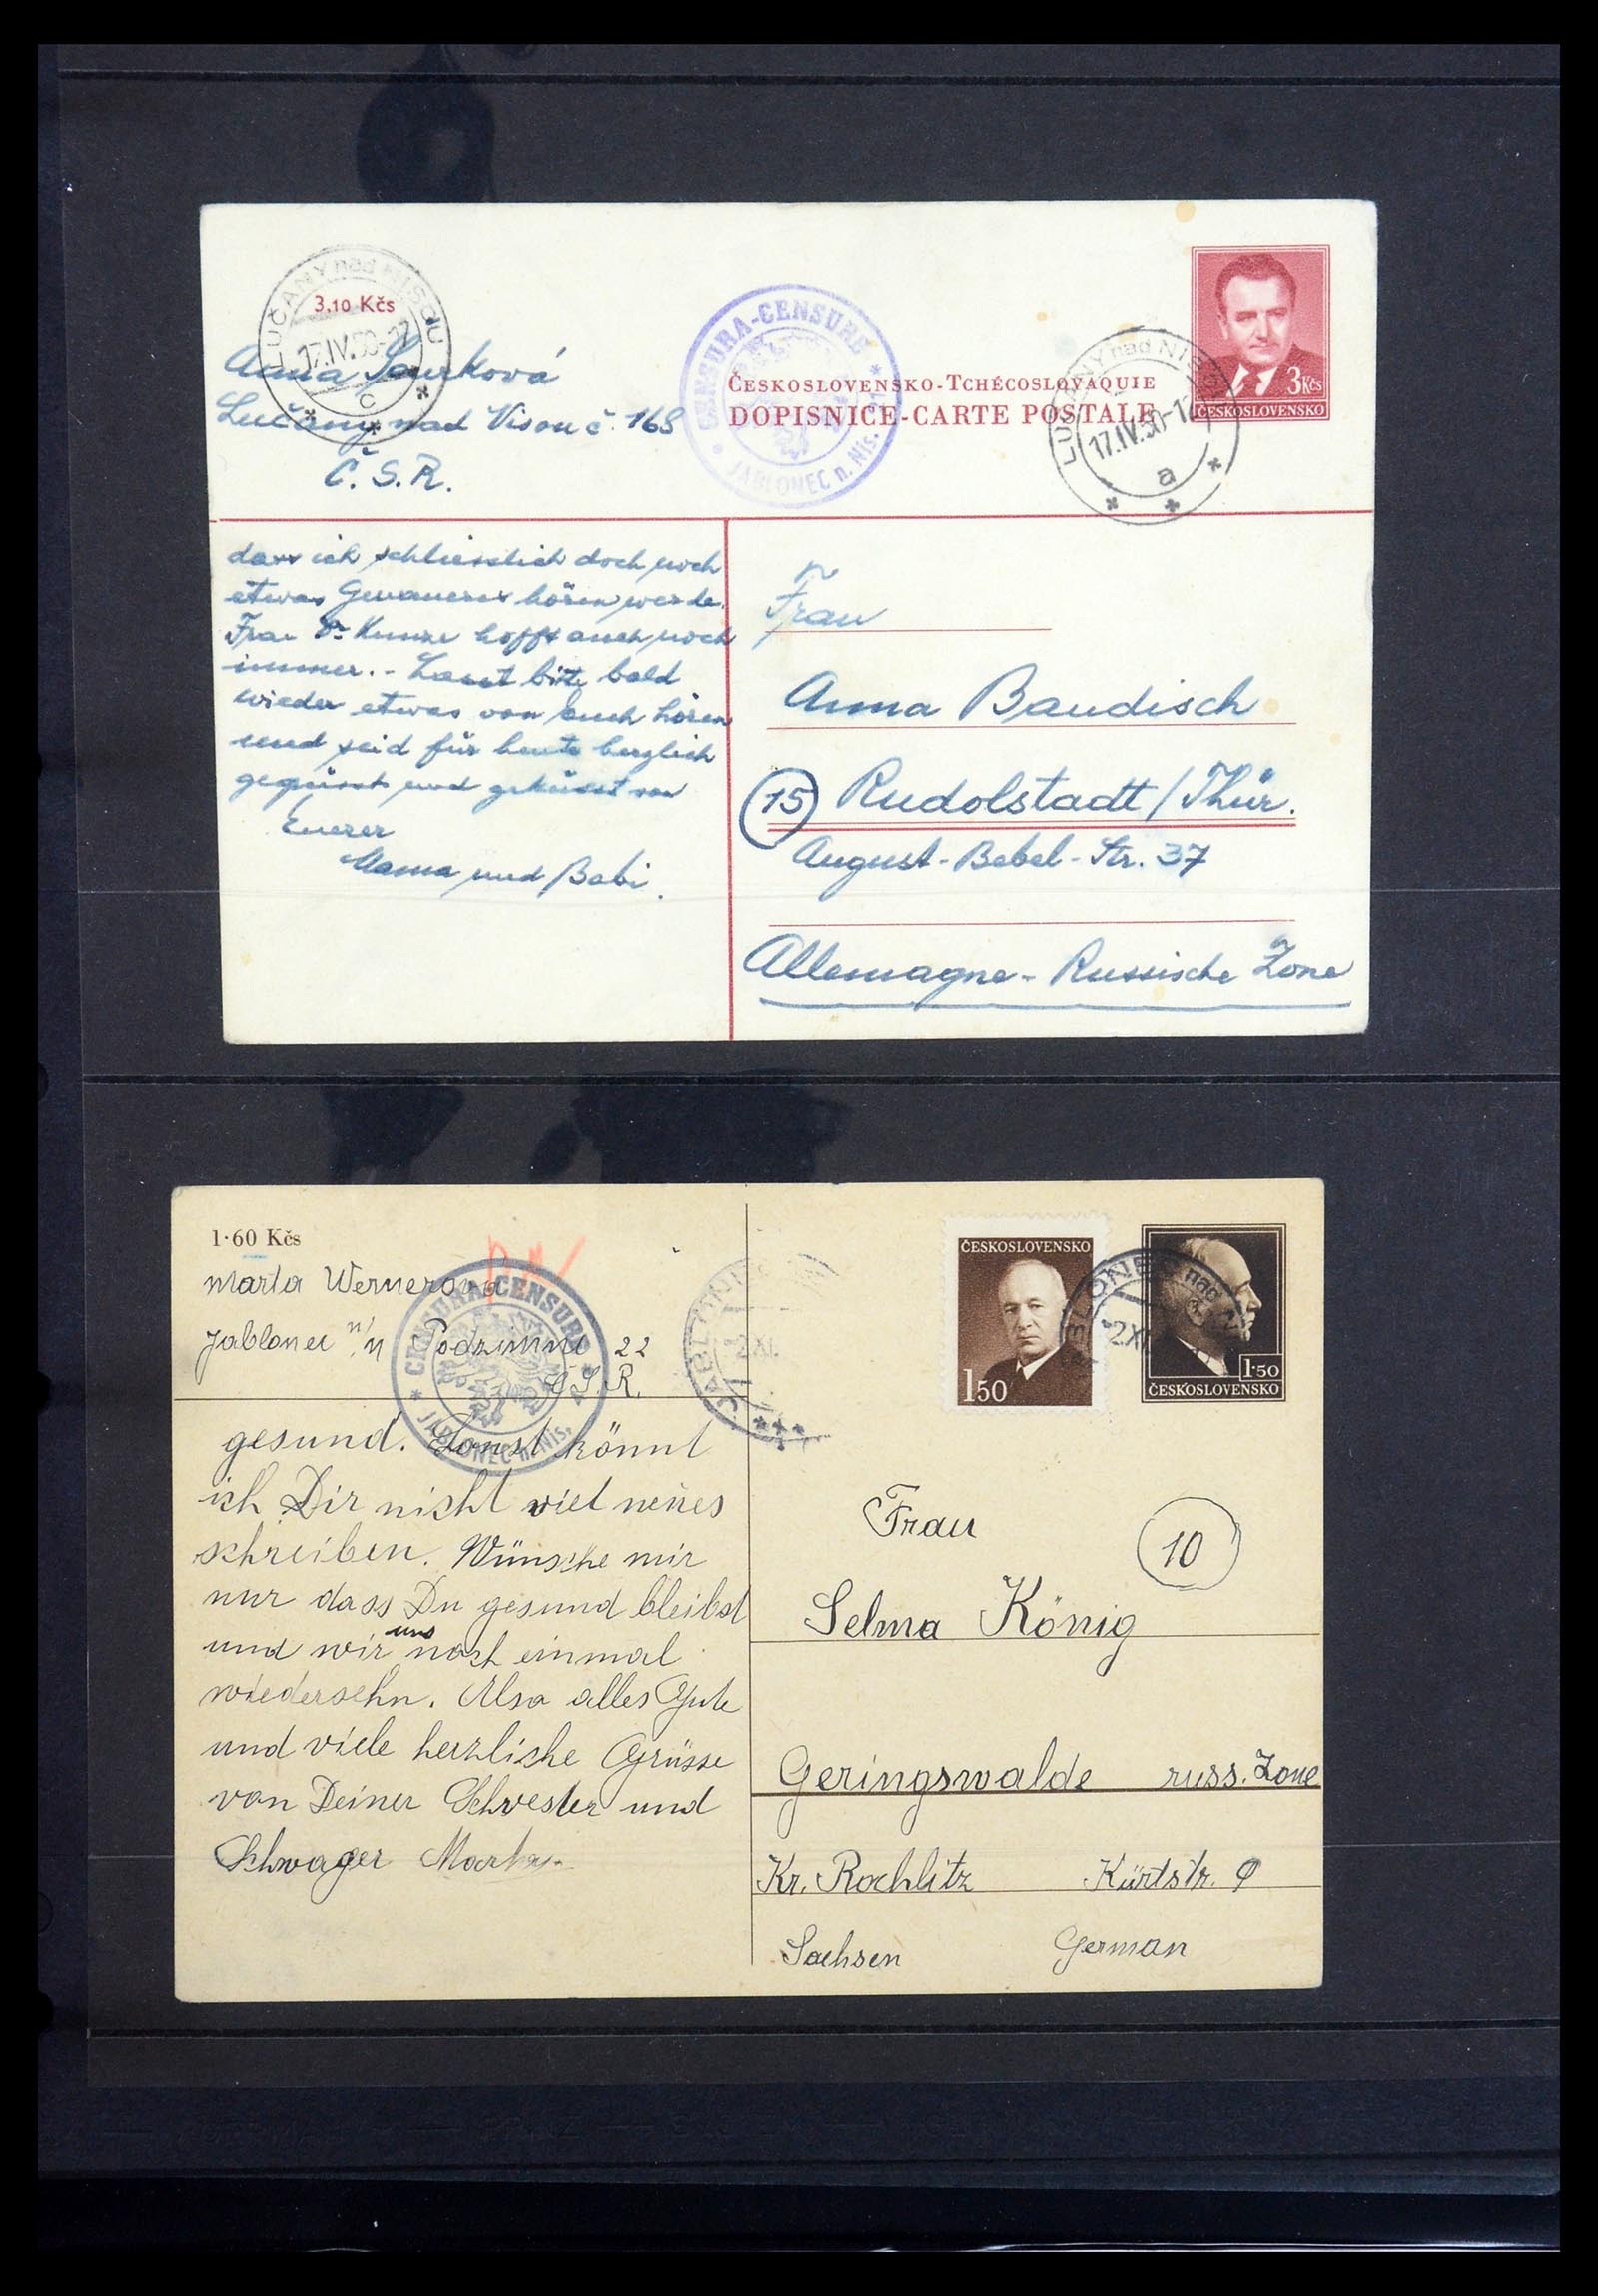 3.10 Kčs
LUČANY nad NISOU
17.IV.50-17
c
CENSURA-CENSURE
JABLONEC n. Nis.
Anna
Lučany nad Nisou č. 168
Č. S. R.
ČESKOSLOVENSKO-TCHÉCOSLOVAQUIE
DOPISNICE-CARTE POSTALE
3Kčs
ČESKOSLOVENSKO
LUČANY nad NISOU
17.IV.50-17
a
dass ich schliesslich doch noch
etwas Genaueres hören werde.
Frau Dr. Kunze hofft auch noch
immer. - Lasst bitte bald
wieder etwas von Euch hören
und seid für heute herzlich
gegrüsst und geküsst von
Euerer
Mama und Babi.
Frau
Anna Baudisch
15 Rudolstadt/Thür.
August-Bebel-Str. 37
Allemagne - Russische Zone
1·60 Kčs
Marta Wernerova
Jablonec n/N Podzimni 22
Č.S.R.
CENSURA-CENSURE
JABLONEC n. Nis.
JABLONEC nad N
2.XI.
ČESKOSLOVENSKO
150
JABLONEC nad N
2.XI
1·50
ČESKOSLOVENSKO
gesund. Sonst könnt
ich Dir nicht viel neues
schreiben. Wünsche mir
nur dass Du gesund bleibst
und wir uns noch einmal
wiedersehn. Also alles Gute
und viele herzliche Grüsse
von Deiner Schwester und
Schwager
Frau
10
Selma König
Geringswalde russ. Zone
Kr. Rochlitz Kürtstr. 9
Sachsen German